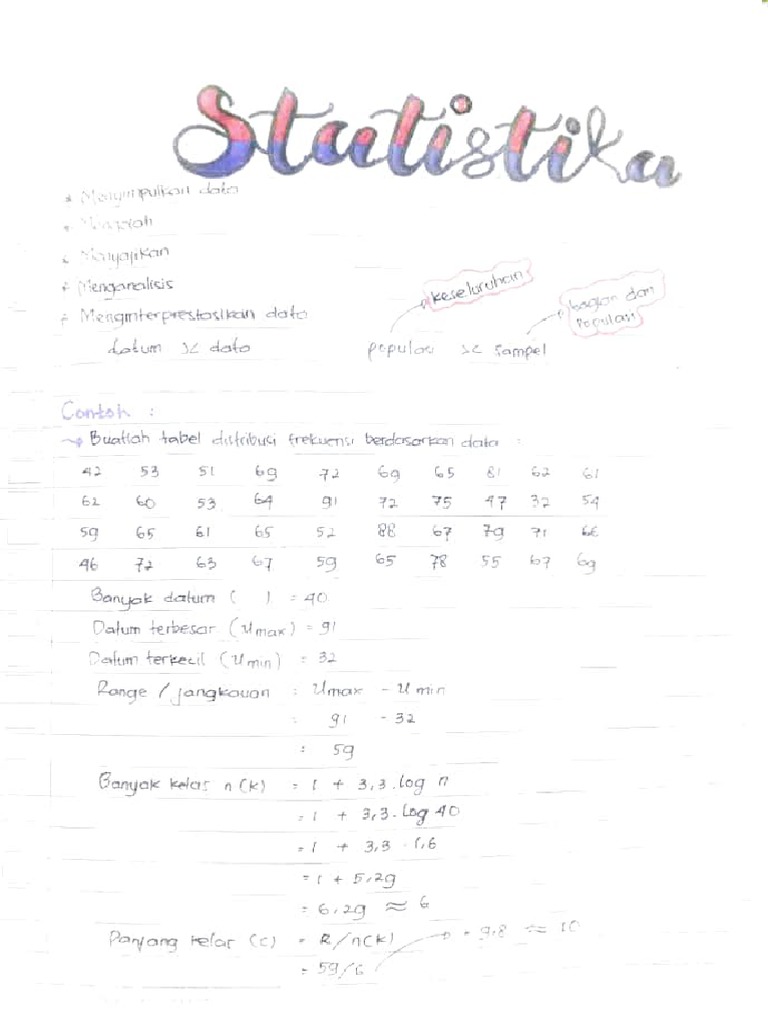 Statistika
* Menyimpulkan data
* Mengolah
* Menyajikan
* Menganalisis
* Menginterprestasikan data
datum & data
populasi & sampel
keseluruhan
bagian dari
Populasi
Contoh :
→ Buatlah tabel distribusi frekuensi berdasarkan data :
42 53 51 69 72 69 65 81 62 61
62 60 53 64 91 72 75 47 32 54
59 65 61 65 52 88 67 79 71 66
46 72 63 67 59 65 78 55 67 69
Banyak datum ( ) = 40
Datum terbesar (xmax) = 91
Datum terkecil (xmin) = 32
Range / jangkauan : xmax - xmin
: 91 - 32
: 59
Banyak kelas n(k) = 1 + 3,3 . log n
= 1 + 3,3 . Log 40
= 1 + 3,3 . 1,6
= 1 + 5,29
= 6,29 ≈ 6
Panjang kelas (c) = R/n(k) = 9,8 ≈ 10
= 59/6